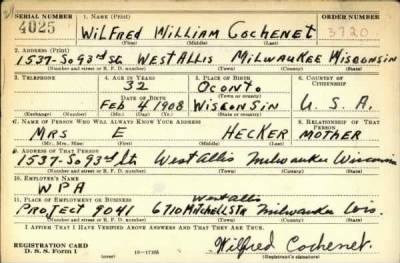 SERIAL NUMBER 1. NAME (Print) ORDER NUMBER
4025 WILFRED WILLIAM COCHENET 3720
(First) (Middle) (Last)
2. ADDRESS (Print)
1537-So 93rd St WEST ALLIS MILWAUKEE WISCONSIN
(Number and street or R. F. D. number) (Town) (County) (State)
3. TELEPHONE 4. AGE IN YEARS 5. PLACE OF BIRTH 6. COUNTRY OF CITIZENSHIP
32 OCONTO
DATE OF BIRTH (Town or county)
FEB 4 1908 WISCONSIN U. S. A.
(Exchange) (Number) (Mo.) (Day) (Yr.) (State or country)
7. NAME OF PERSON WHO WILL ALWAYS KNOW YOUR ADDRESS 8. RELATIONSHIP OF THAT PERSON
MRS E HECKER MOTHER
(Mr., Mrs., Miss) (First) (Middle) (Last)
9. ADDRESS OF THAT PERSON
1537-So 93rd St West Allis Milwaukee Wisconsin
(Number and street or R. F. D. number) (Town) (County) (State)
10. EMPLOYER'S NAME
WPA
11. PLACE OF EMPLOYMENT OR BUSINESS West Allis
Project 9041 6710 Mitchell St Milwaukee Wis.
(Number and street or R. F. D. number) (Town) (County) (State)
I AFFIRM THAT I HAVE VERIFIED ABOVE ANSWERS AND THAT THEY ARE TRUE.
REGISTRATION CARD Wilfred Cochenet
D. S. S. Form 1 (over) (Registrant's signature)